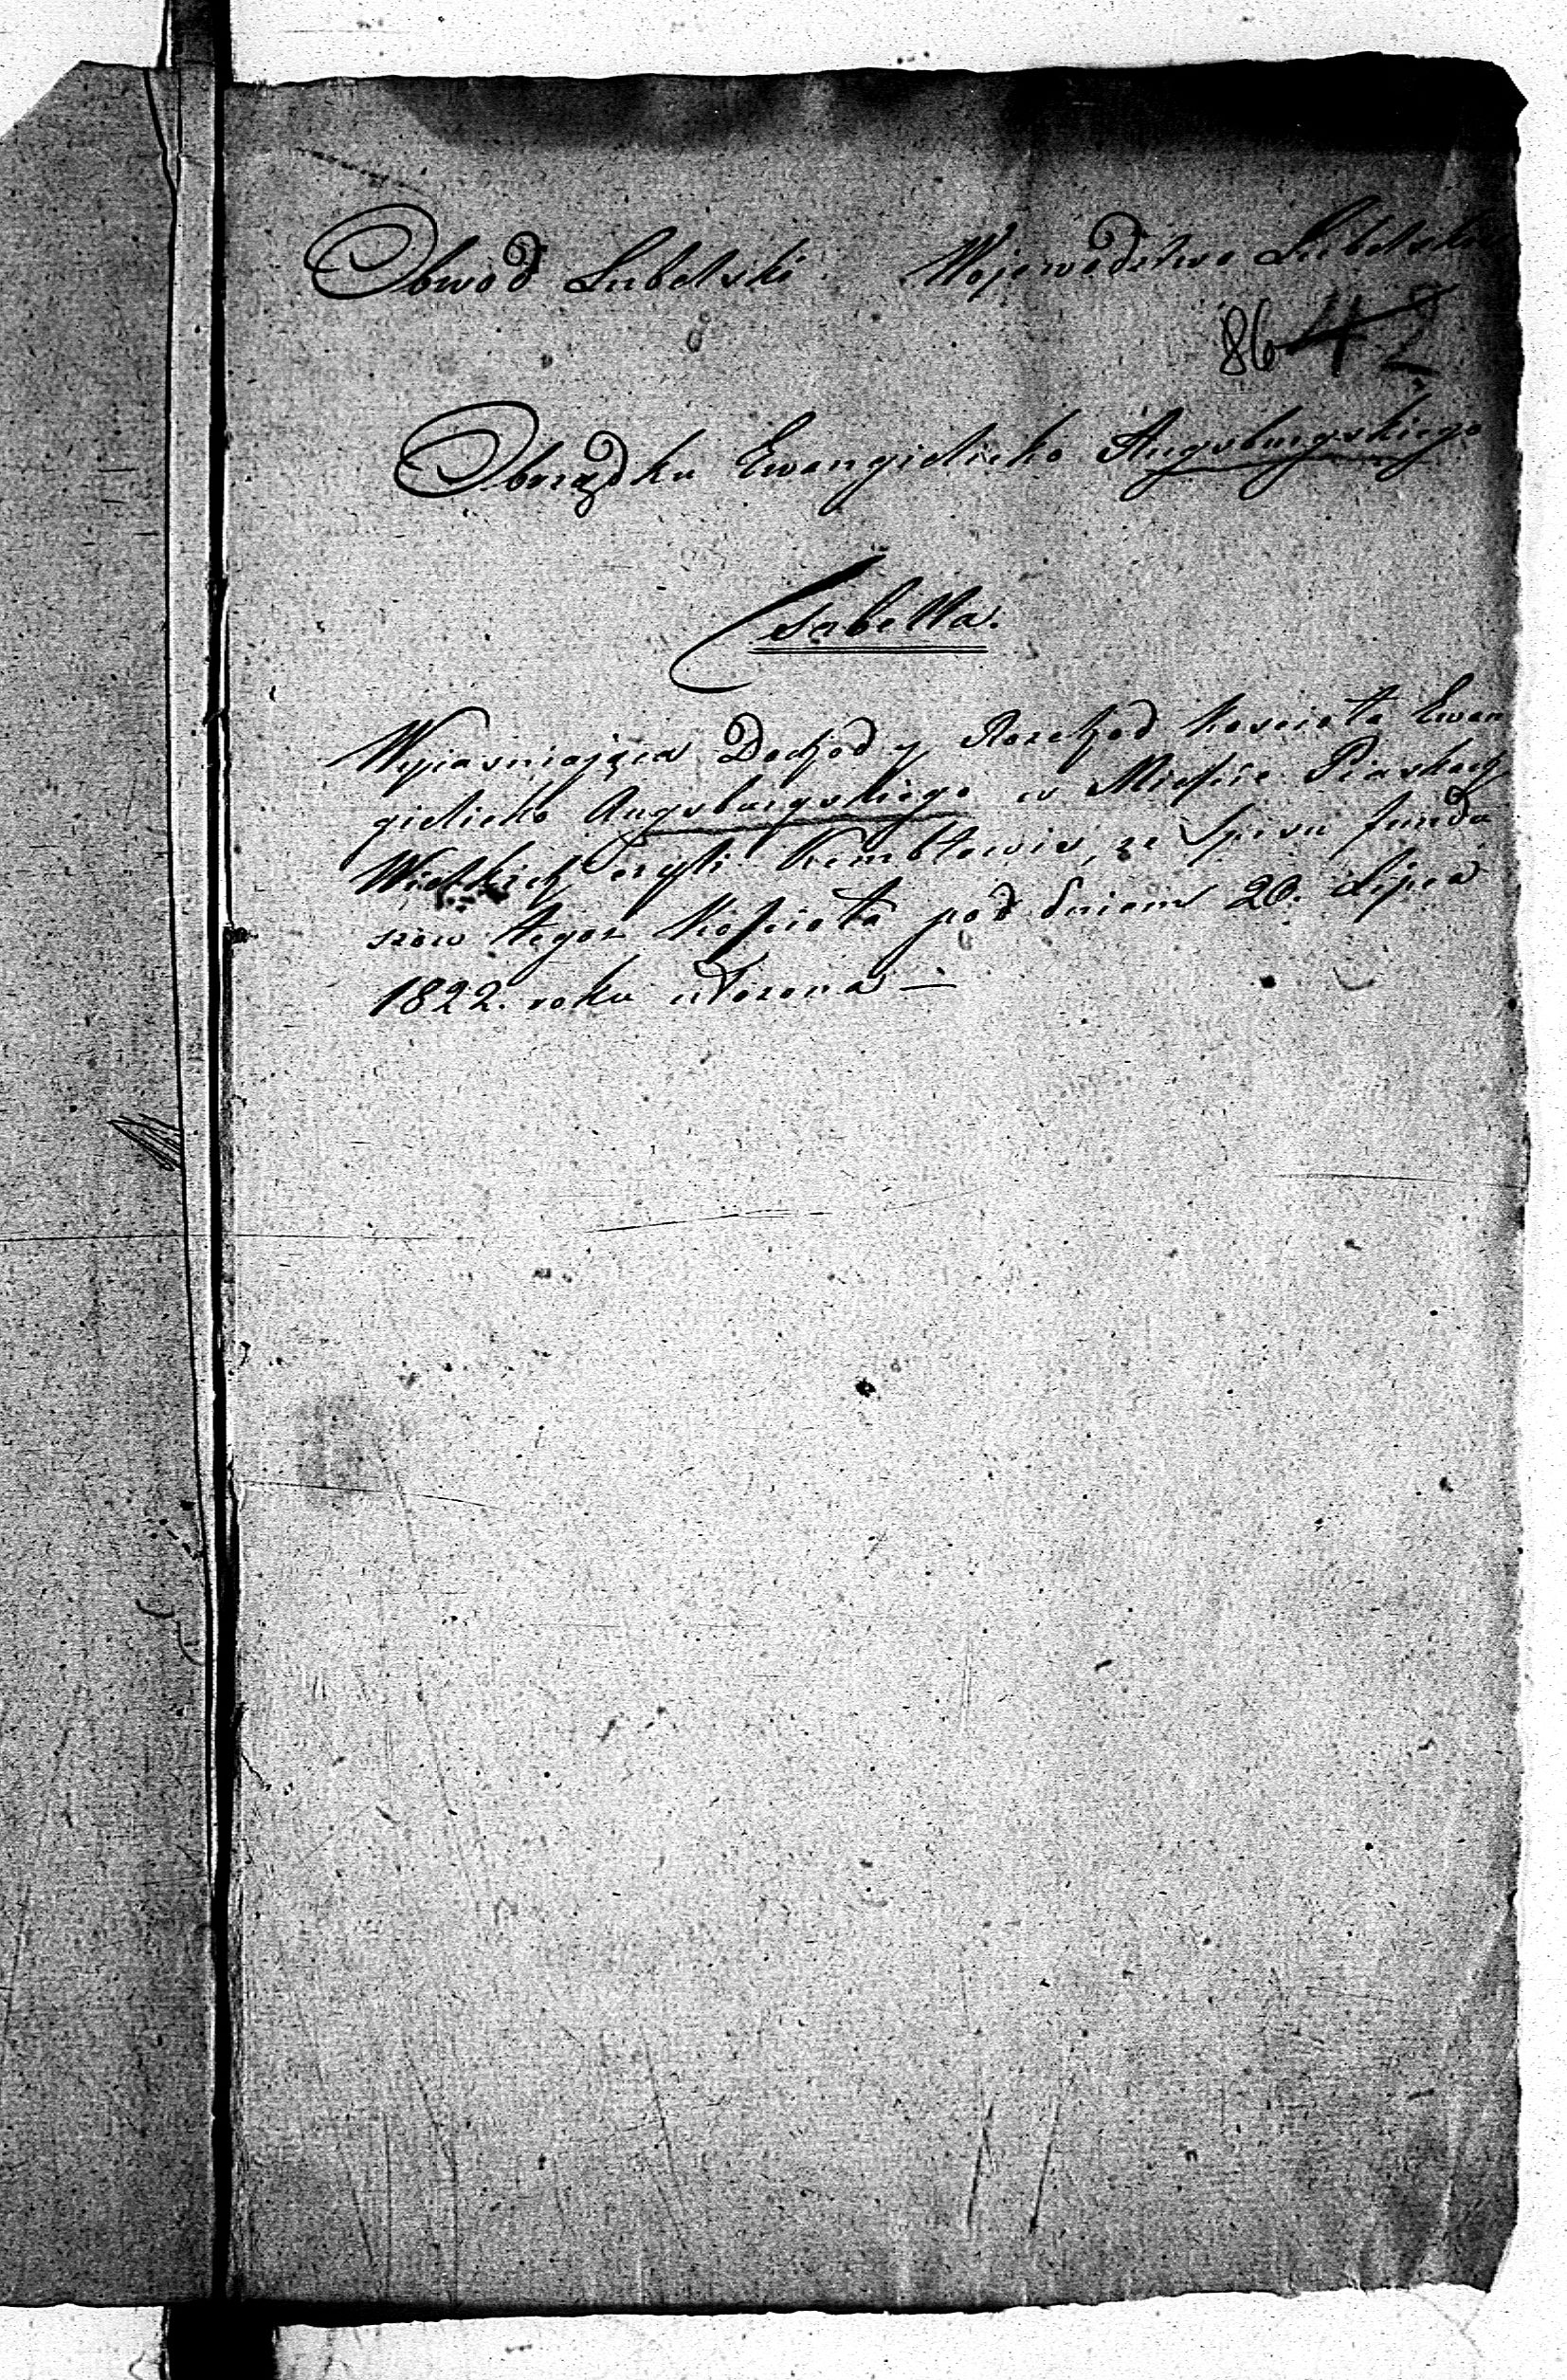 Obwód Lubelski Wojewodztwo Lubelskie
86 42
Obrządku Ewangielicko Augsburgskiego
Tabella.
Wyiasniaiąca Dochod y Rozchod koscioła Ewan
gielicko Augsburgskiego w Miescie Piaskach
Wielkich czyli Kembłowie, ze spisu fundu
szow tegoz Koscioła pod dniem 20. Lipca
1822. roku ułozona —